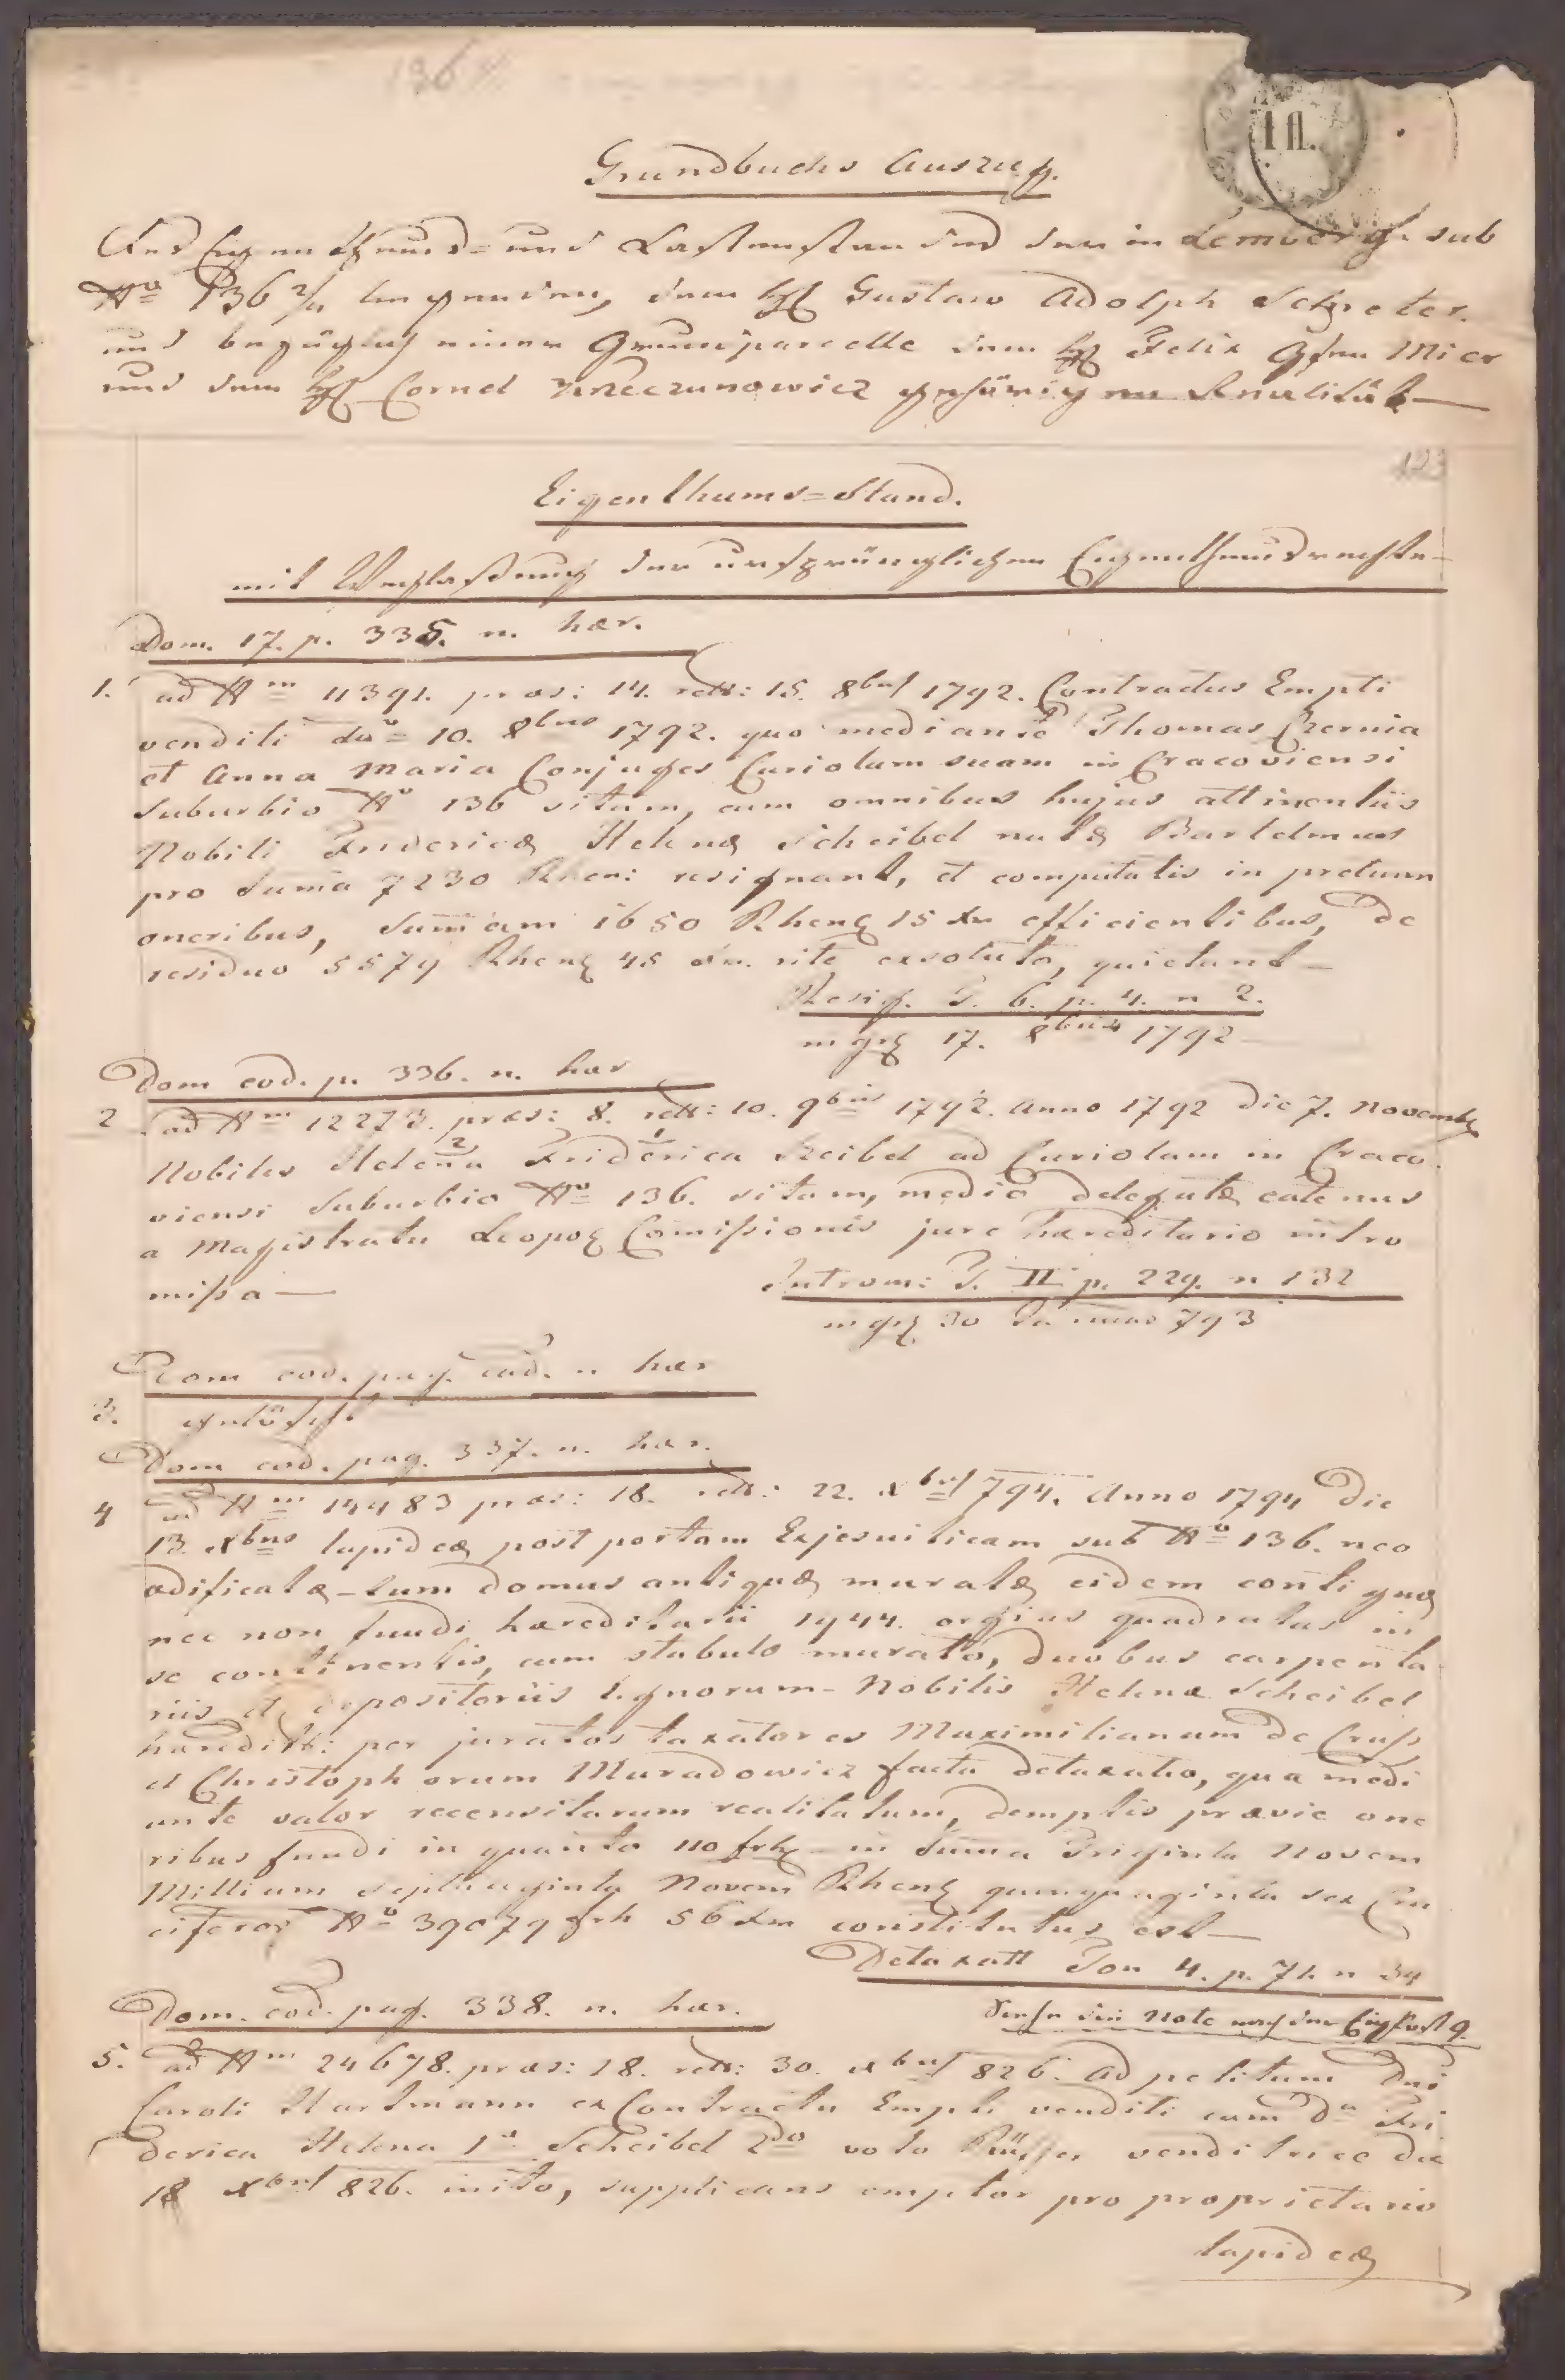 136
1 fl.
Grundbuchs Auszug.
Des Eigenthums- und Lastenstandes der in Lemberg sub
Nº 136 2/4 liegenden, dem H. Gustav Adolph Schreter.
und bezüglich einer Grundparcelle dem H. Felix Grfen Mier
und dem H. Cornel Krzeczunowicz gehörigen Realität
123
Eigenthums-Stand.
mit Weglaßung der ursprünglichen Eigenthumsrechte
Dom. 17. p. 335. n. hær.
1. ad Nm 11391. præs: 14. rett: 15. 8bris 1792. Contractus Empti
venditi dto 10. 8bris 1792. quo mediante Thomas Czernia
et Anna Maria Conjuges Curiolam suam in Cracoviensi
Suburbio Nº 136 sitam, cum omnibus hujus attinentiis
Nobili Fridericæ Helenæ Scheibel natæ Bartelmus
pro Suma 7230 Rhen: resignant, et computatis in pretium
oneribus, Summam 1650 Rhen 15 xr efficientibus, de
residuo 5579 Rhen 45 xr. rite exsoluto, quietant
Resig. T. 6. p. 4. n 2.
ingr 17. 8bris 1792
Dom eod. p. 336. n. hær
2 ad Nm 12273. præs: 8. rett: 10. 9bris 1792. Anno 1792 Die 7. Novemb
Nobilis Helena Friderica Szeibel ad Curiolam in Craco
viensi Suburbio Nro 136. sitam, medio delegatæ eatenus
a Magistratu Leopol Comißionis jure hæreditario intro
mißa
Introm: T. II p. 229. n 132
ingr 30 Januar 793
Dom eod. pag. ead. n hær
3. gelöscht
Dom eod. pag. 337. n. hær.
4 ad Nm 14483 præs: 18. rett: 22. xbris 794. Anno 1794 Die
13. xbris lapideæ post portam Exjesuiticam sub Nº 136. neo
ædificatæ - tum domus antiquæ muratæ eidem contiguæ
nec non fundi hæreditarii 1944. orgias quadratas in
se continentis, cum stabulo murato, duobus carpenta
riis et depositoriis lignorum - Nobilis Helenæ Scheibel
hæredit: per juratos taxatores Maximilianum De Cruß
et Christophorum Muradowicz facta detaxatio, qua medi
ante valor recensitarum realitatum, demptis prævie one
ribus fundi in quanto 110 frh in Suma Triginta Novem
Millium septuaginta Novem Rhen quinquaginta sex Cru
ciferor Nº 39079 frh 56 xr constitutus est
Detaxatt Tom 4. p. 74 n 34
Siehe die Note nach der Eigpost 9.
Dom. eod. pag. 338. n. hær.
5. ad Nm 24678. præs: 18. rett: 30. xbris 826. Ad petitum Dni
Caroli Hartmann ex Contractu Empti venditi cum Da Fri
derica Helena 1º Scheibel 2do voto venditrice die
18 xbris 826. inito, supplicans emptor pro proprietario
lapideæ